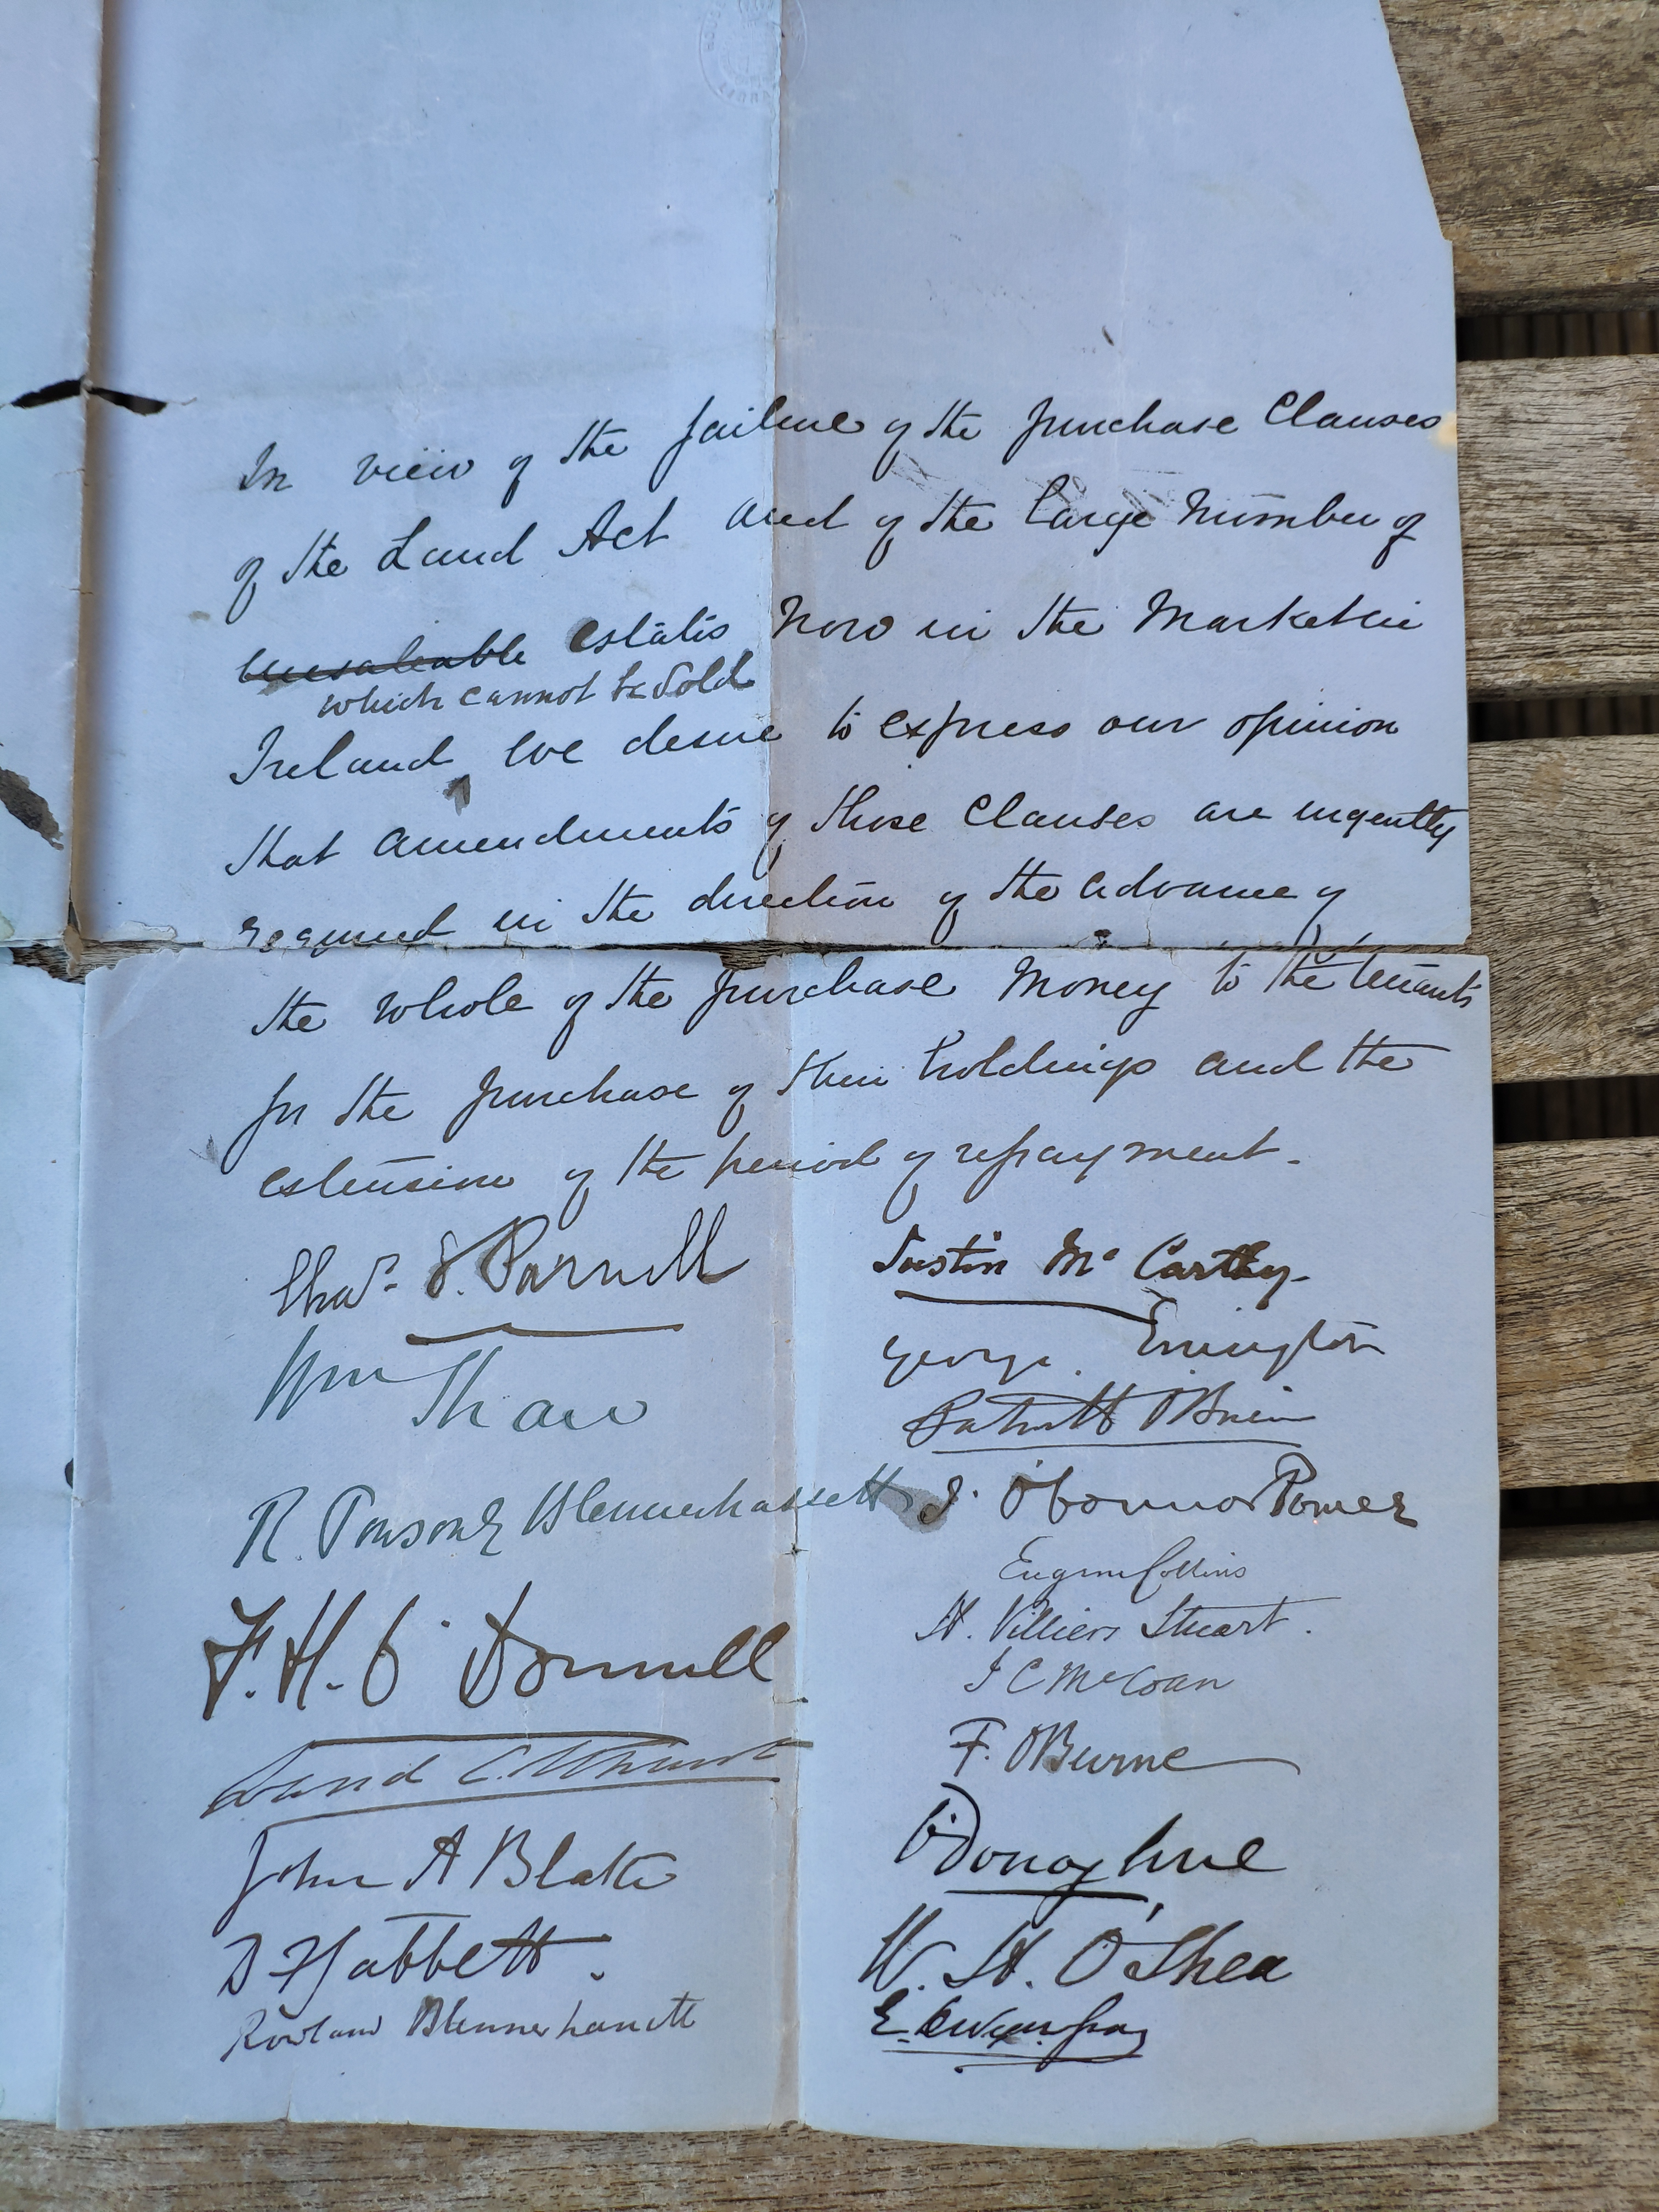 In view of the failure of the purchase Clauses
of the Land Act and of the large Number of
Unsaleable Estates Now in the Market in
which cannot be Sold
Ireland we desire to express our opinion
that amendments of those Clauses are urgently
required in the direction of the advance of
the whole of the purchase Money to the tenants
for the purchase of their holdings and the
extension of the period of repayment.
Chas. S. Parnell
Wm Shaw
R. Ponsonby Blennerhassett
F. H. O'Donnell
John A Blake
D F Gabbett.
Rowland Blennerhassett
Justin McCarthy.
George Errington
Patrick O'Brien
J. O'Connor Power
Eugene Collins
H. Villiers Stuart.
J C McCoan
F. O'Beirne
O'Donoghue
W. H. O'Shea
E. Dwyer Gray